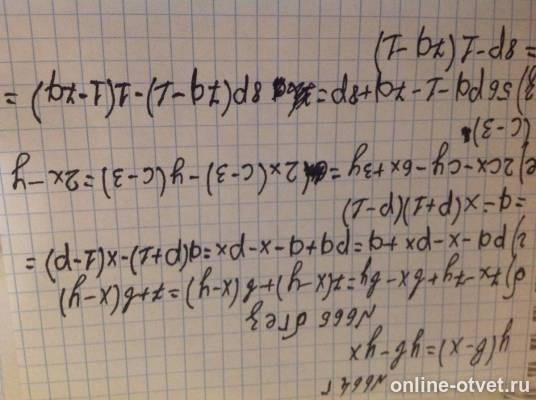 N664 г
y(b-x)=yb-yx
N665 бгез
б) 7x-7y+bx-by=7(x-y)+b(x-y)=7+b(x-y)
г) pq-x-px+q=pq+q-x-px=q(p+1)-x(1-p)=
=q-x(p+1)(p-1)
е) 2cx-cy-6x+3y= 2x(c-3)-y(c-3)=2x-y
(c-3)
з) 56pq-1-7q+8p= 8p(7q-1)-1(1-7q)=
=8p-1(7q-1)
online-otvet.ru